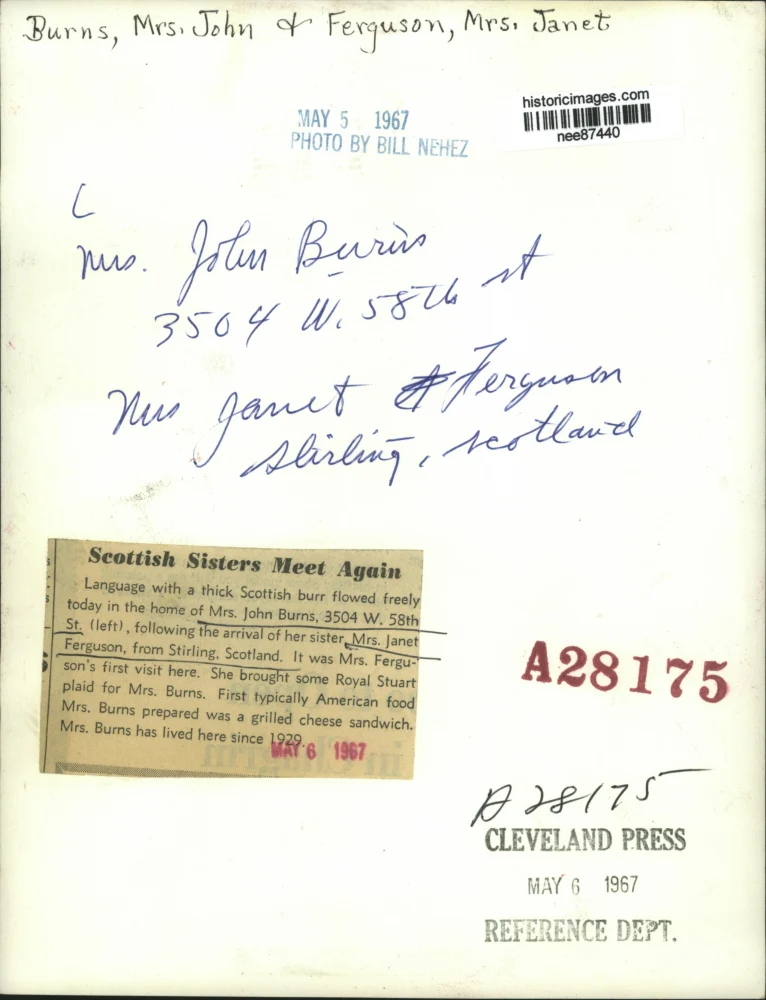 Burns, Mrs. John & Ferguson, Mrs. Janet
historicimages.com
nee87440
MAY 5 1967
PHOTO BY BILL NEHEZ
Mrs. John Burns
3504 W. 58th st
Mrs Janet Ferguson
Stirling, Scotland
Scottish Sisters Meet Again
Language with a thick Scottish burr flowed freely
today in the home of Mrs. John Burns, 3504 W. 58th
St. (left), following the arrival of her sister, Mrs. Janet
Ferguson, from Stirling, Scotland. It was Mrs. Fergu-
son's first visit here. She brought some Royal Stuart
plaid for Mrs. Burns. First typically American food
Mrs. Burns prepared was a grilled cheese sandwich.
Mrs. Burns has lived here since 1929.
MAY 6 1967
A28175
A28175
CLEVELAND PRESS
MAY 6 1967
REFERENCE DEPT.